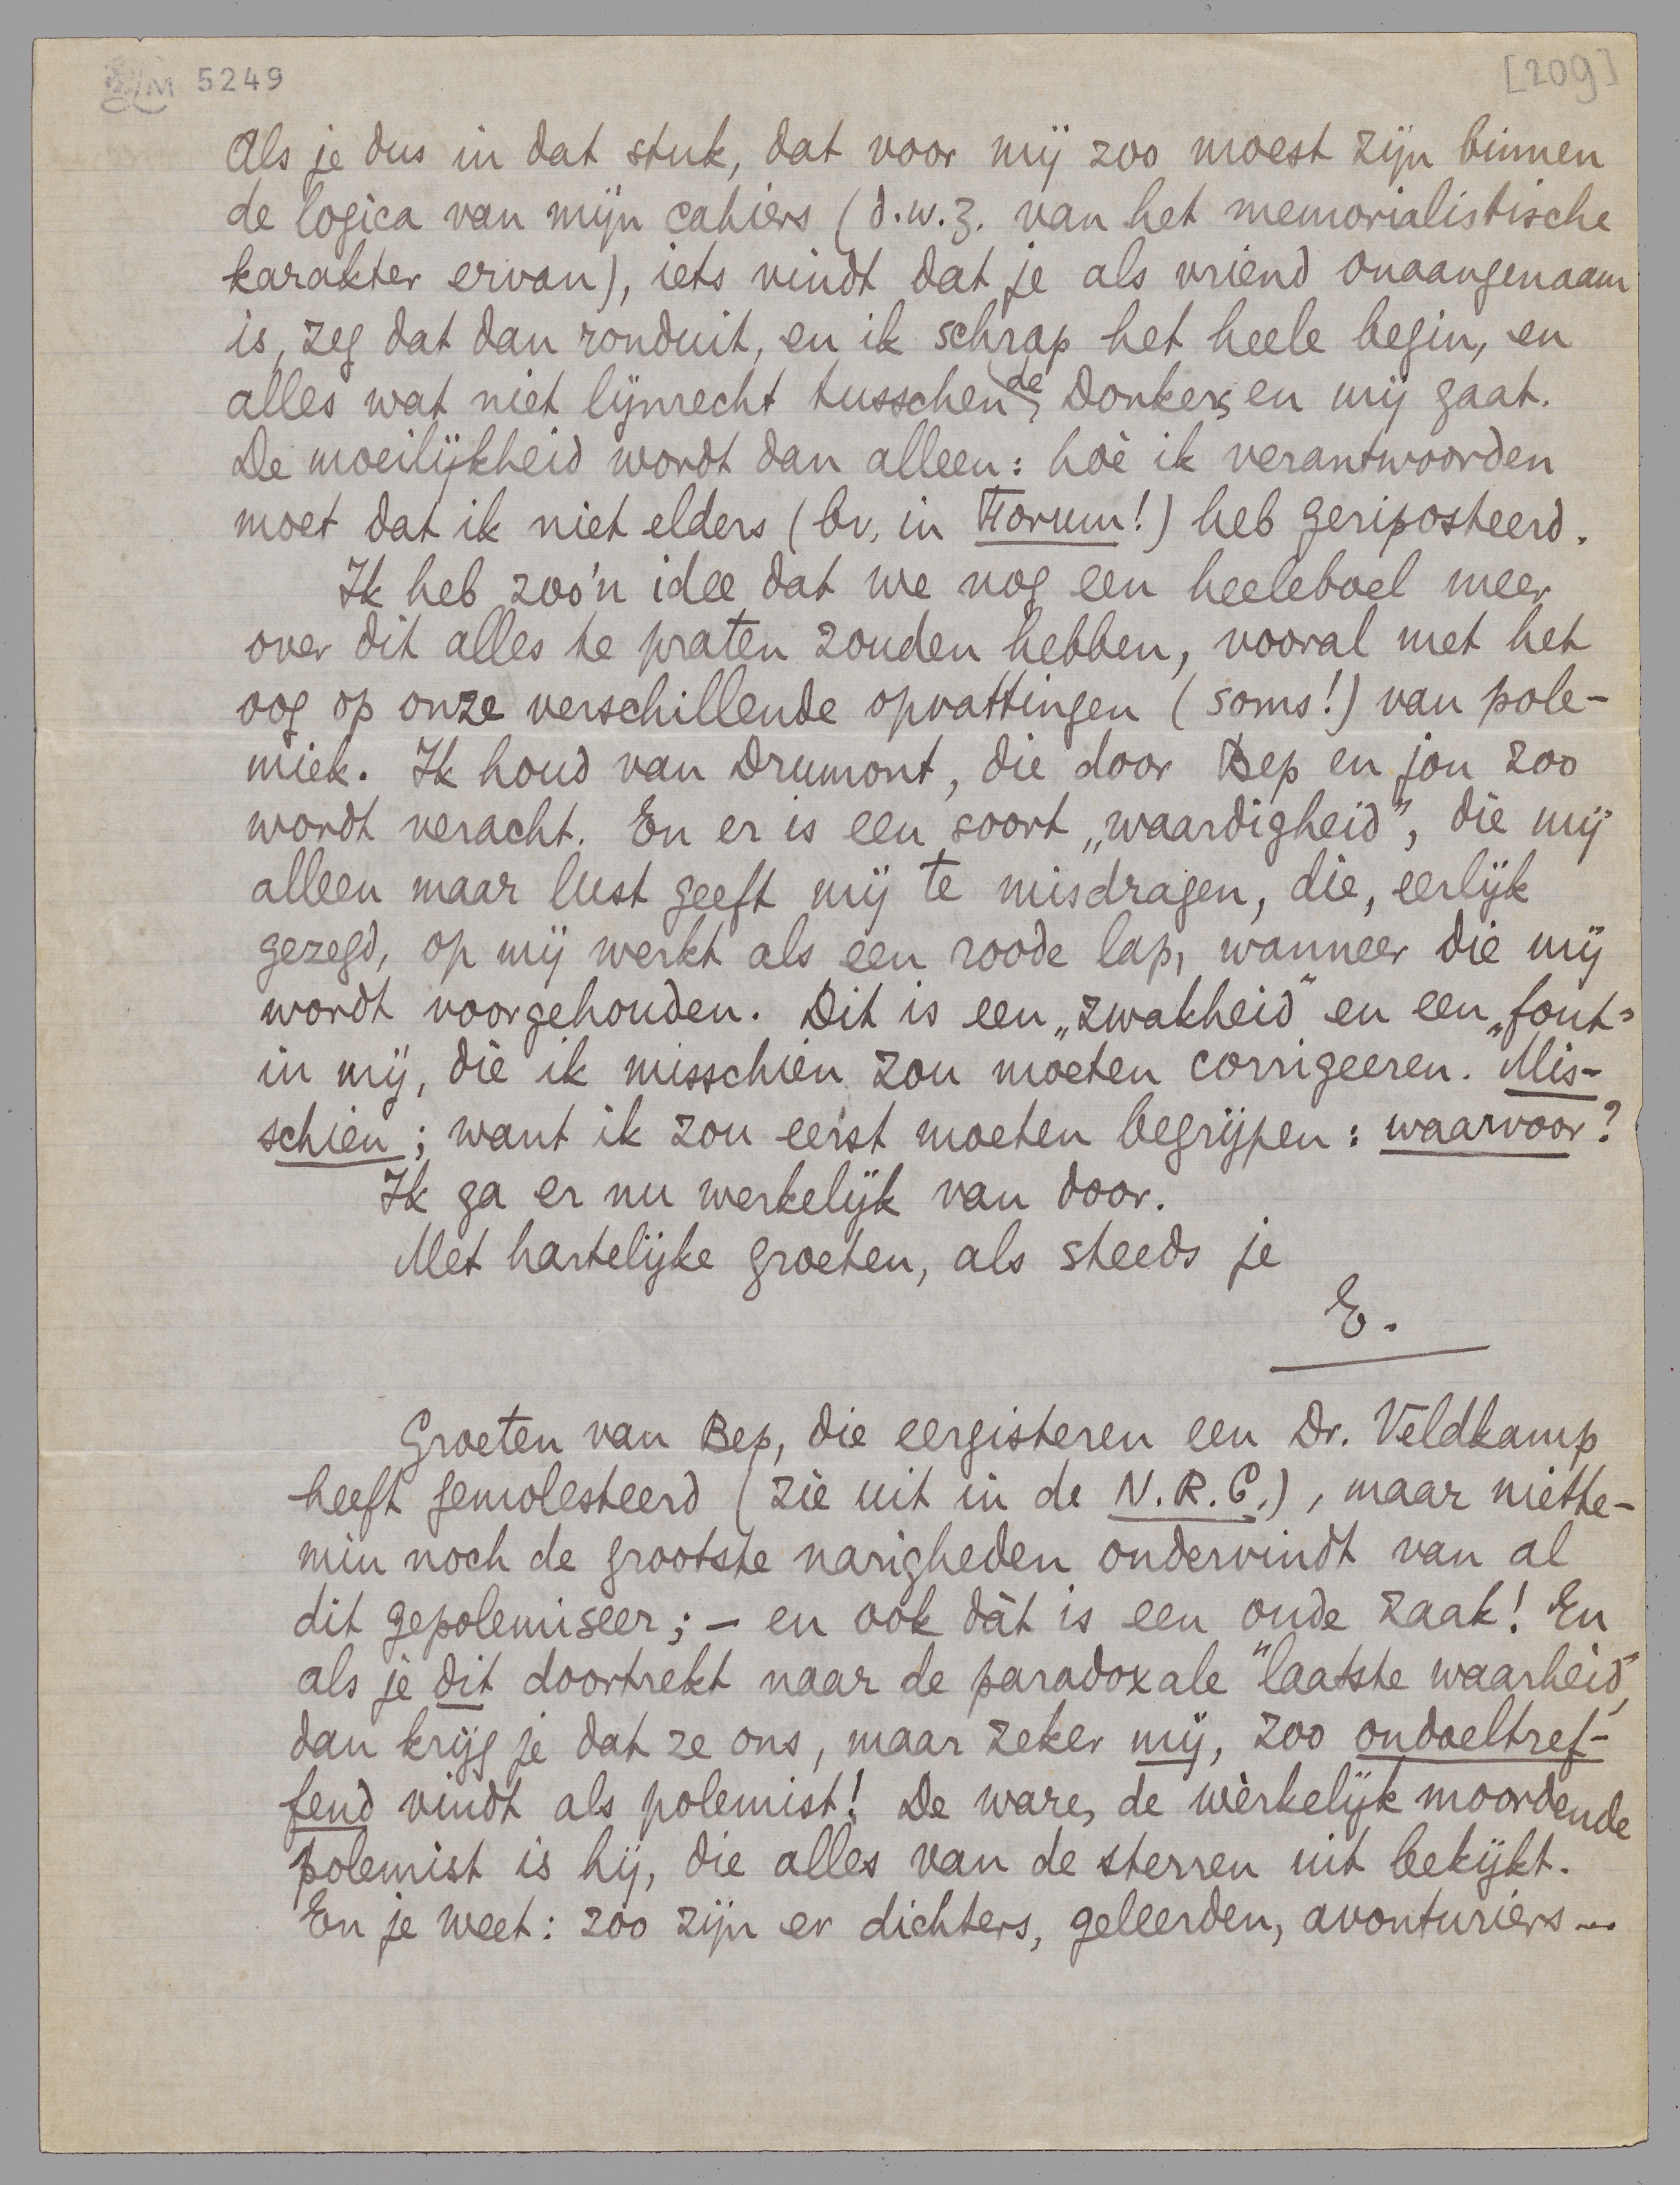 LM 5249
[209]
Als je dus in dat stuk, dat voor mij zoo moest zijn binnen
de logica van mijn cahiers (d.w.z. van het memorialistische
karakter ervan), iets vindt dat je als vriend onaangenaam
is, zeg dat dan ronduit, en ik schrap het heele begin, en
alles wat niet lijnrecht tusschen de Donkers en mij gaat.
De moeilijkheid wordt dan alleen: hoè ik verantwoorden
moet dat ik niet elders (bv. in Forum!) heb geriposteerd.
Ik heb zoo'n idee dat we nog een heeleboel meer
over dit alles te praten zouden hebben, vooral met het
oog op onze verschillende opvattingen (soms!) van pole-
miek. Ik houd van Drumont, die door Bep en jou zoo
wordt veracht. En er is een soort „waardigheid”, die mij
alleen maar lust geeft mij te misdragen, die, eerlijk
gezegd, op mij werkt als een roode lap, wanneer die mij
wordt voorgehouden. Dit is een „zwakheid” en een „fout”
in mij, die ik misschien zou moeten corrigeeren. Mis-
schien; want ik zou eerst moeten begrijpen: waarvoor?
Ik ga er nu werkelijk van door.
Met hartelijke groeten, als steeds je
E.
Groeten van Bep, die eergisteren een Dr. Veldkamp
heeft gemolesteerd (zie uit in de N.R.C.), maar niette-
min noch de grootste narigheden ondervindt van al
dit gepolemiseer; – en ook dàt is een oude zaak! En
als je dit doortrekt naar de paradoxale "laatste waarheid",
dan krijg je dat ze ons, maar zeker mij, zoo ondoeltref-
fend vindt als polemist! De ware, de wèrkelijk moordende
polemist is hij, die alles van de sterren uit bekijkt.
En je weet: zoo zijn er dichters, geleerden, avonturiers...